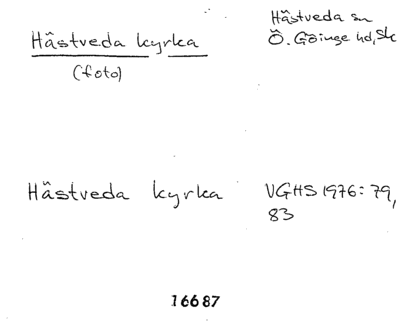 Hästveda kyrka
(foto)
Hästveda sn
Ö. Göinge hd, Sk
Hästveda kyrka
VGHS 1976: 79,
83
16687